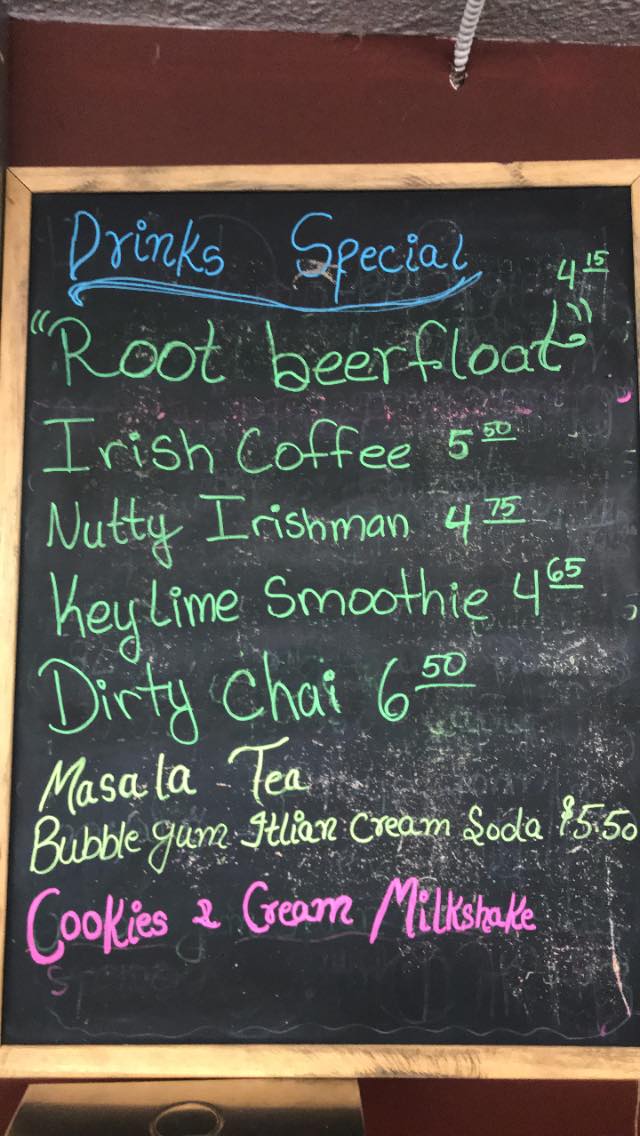 Drinks Special
4 15
"Root beerfloat"
Irish Coffee 5 50
Nutty Irishman 4 75
Key lime Smoothie 4 65
Dirty Chai 6 50
Masala Tea
Bubble gum Itlian Cream Soda $5.50
Cookies & Cream Milkshake